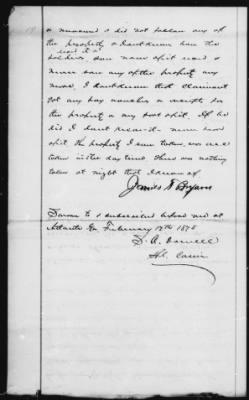 a movement & did not follow any of
the property & I dont know how the
used it &
soldiers ever never spit used &
never saw any of the property any
more. I dont know that claimant
got any voucher or receipts for
the property or any part of it. If he
did I dont recall never saw
of it the property I saw taken, was all
taken in the day time there was nothing
taken at night that I know of
James N Bryans
Sworn to & subscribed before me at
Atlanta Ga February 12th 1878
Spl. Comr